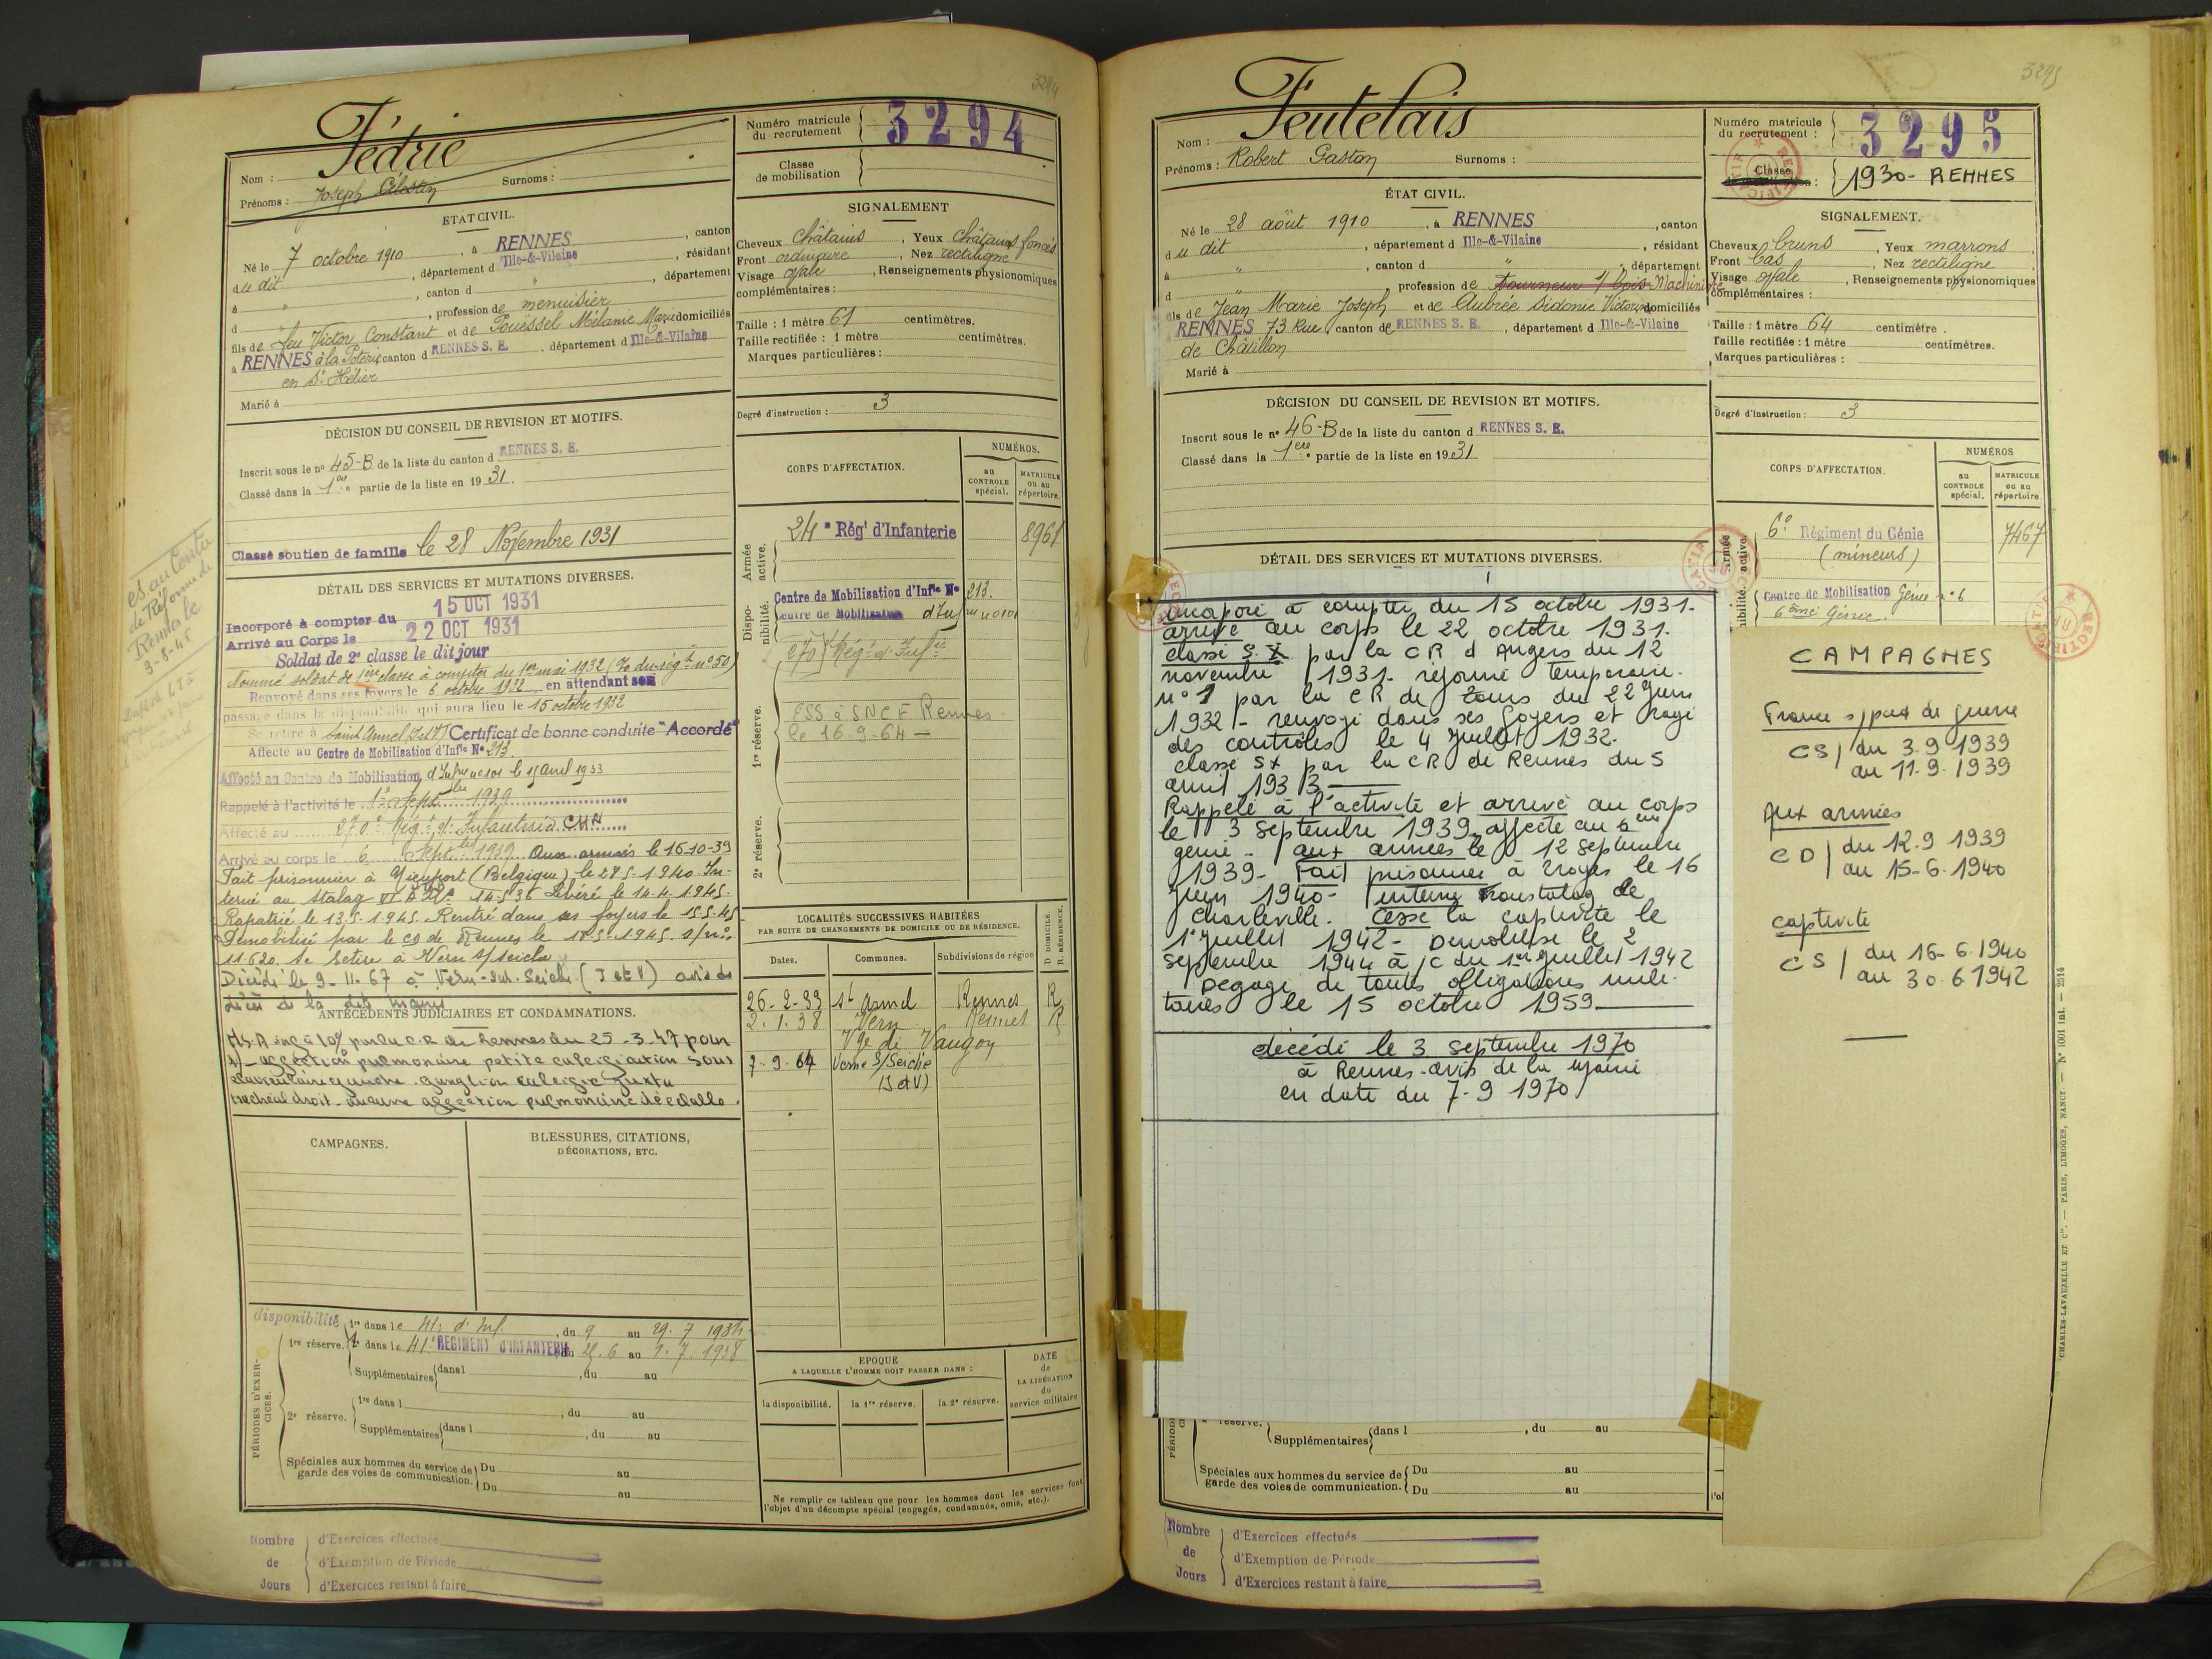 3294
Fédrie
Nom :
Prénoms : Joseph Célestin Surnoms :
Numéro matricule du recrutement 3294
Classe de mobilisation
ÉTAT CIVIL.
Né le 7 octobre 1910, à RENNES, canton
du dit, département d Ille-&-Vilaine, résidant
à ", canton d ", département
d ", profession de menuisier
fils de feu Victor Constant et de Pouëssel Mélanie Marie domiciliés
à RENNES à la Poterie canton d RENNES S. E. département d Ille-&-Vilaine
en St Hélier
Marié à
SIGNALEMENT
Cheveux châtains, Yeux châtains foncés
Front ordinaire, Nez rectiligne
Visage ovale, Renseignements physionomiques
complémentaires :
Taille : 1 mètre 61 centimètres.
Taille rectifiée : 1 mètre centimètres.
Marques particulières :
Degré d'instruction : 3
DÉCISION DU CONSEIL DE REVISION ET MOTIFS.
Inscrit sous le n° 45-B de la liste du canton d RENNES S. E.
Classé dans la 1ère partie de la liste en 1931.
Classé soutien de famille le 28 Novembre 1931
es. au Centre
de Réforme de
Rennes le
3-8-45
DÉTAIL DES SERVICES ET MUTATIONS DIVERSES.
Incorporé à compter du 15 OCT 1931
Arrivé au Corps le 22 OCT 1931
Soldat de 2e classe le dit jour
Nommé soldat de 1ère classe à compter du 1er mai 1932 (O. du régt n° 50)
Renvoyé dans ses foyers le 6 octobre 1932 en attendant son
passage dans la disponibilité qui aura lieu le 15 octobre 1932
Se retire à Saint Armel (I et V) Certificat de bonne conduite "Accordé"
Affecté au Centre de Mobilisation d'Infie N° 213
Affecté au Centre de Mobilisation d'Infie n° 101 le 15 avril 1933
Rappelé à l'activité le 1er Septbre 1939
Affecté au 270e Rég. d'Infanterie
Arrivé au corps le 6 Septbre 1939 Aux armées le 16-10-39
Fait prisonnier à Nieuport (Belgique) le 28-5-1940. In-
terné au Stalag VI A N° 14536 Libéré le 14.4.1945.
Rapatrié le 13.5.1945. Rentré dans ses foyers le 15.5.45
Démobilisé par le CD de Rennes le 18-5-1945 s/n°
11.620. Se retire à Vern s/Seiche
Décédé le 9-11-67 à Vern-sur-Seiche (I et V) avis de
CORPS D'AFFECTATION.
NUMÉROS.
au CONTROLE spécial.
MATRICULE ou au répertoire.
Armée active.
24e Régt d'Infanterie 8961
Disponibilité.
Centre de Mobilisation d'Infie N° 213.
Centre de Mobilisation d'Infie n° 101
270 Régt d'Infie
1re réserve.
ESS à SNCF Rennes
le 16-9-64
2e réserve.
ANTÉCÉDENTS JUDICIAIRES ET CONDAMNATIONS.
inf à 10% par la C.R de Rennes du 25-3-47 pour
1)- affection pulmonaire petite calcification sous
claviculaire gauche. ganglion calcifié juxta
trachéal droit - aucune affection pulmonaire décelable.
LOCALITÉS SUCCESSIVES HABITÉES
PAR SUITE DE CHANGEMENTS DE DOMICILE OU DE RÉSIDENCE.
Dates. Communes. Subdivisions de région D. DOMICILE. R. RÉSIDENCE.
26-2-33 St Armel Rennes R
2-1-38 Vern Rennes R
Vge de Vaugon
7-9-64 Verne S/Seiche
(I et V)
CAMPAGNES.
BLESSURES, CITATIONS,
DÉCORATIONS, ETC.
PÉRIODES D'EXERCICES.
disponibilité 1re dans le 41e d'Inf., du 9 au 29.7 1934
1re réserve. 2e dans le 41e RÉGIMENT D'INFANTERIE du 25.6 au 2.7.1938
Supplémentaires dans l , du au
2e réserve. 1re dans l , du au
Supplémentaires dans l , du au
Spéciales aux hommes du service de garde des voies de communication. Du au
Du au
EPOQUE
A LAQUELLE L'HOMME DOIT PASSER DANS :
la disponibilité. la 1re réserve. la 2e réserve.
DATE de LA LIBÉRATION du service militaire
Ne remplir ce tableau que pour les hommes dont les services font
l'objet d'un décompte spécial (engagés, condamnés, omis, etc.).
Nombre de Jours
d'Exercices effectués
d'Exemption de Période
d'Exercices restant à faire
3295
Feutelais
Nom :
Prénoms : Robert Gaston Surnoms :
Numéro matricule du recrutement : 3295
Classe 1930 - RENNES
RECTIFICATIF
ÉTAT CIVIL.
Né le 28 août 1910, à RENNES, canton
du dit, département d Ille-&-Vilaine, résidant
à ", canton d ", département
d ", profession de tourneur s/ bois Machiniste
fils de Jean Marie Joseph et de Aubrée Sidonie Victorine domiciliés
RENNES 73 Rue canton de RENNES S. E., département d Ille-&-Vilaine
de Châtillon
Marié à
SIGNALEMENT.
Cheveux bruns, Yeux marrons
Front bas, Nez rectiligne
Visage ovale, Renseignements physionomiques
complémentaires :
Taille : 1 mètre 64 centimètre.
Taille rectifiée : 1 mètre centimètres.
Marques particulières :
Degré d'instruction : 3
DÉCISION DU CONSEIL DE REVISION ET MOTIFS.
Inscrit sous le n° 46-B de la liste du canton d RENNES S. E.
Classé dans la 1ère partie de la liste en 1931
CORPS D'AFFECTATION.
NUMÉROS
au CONTROLE spécial.
MATRICULE ou au répertoire
Armée active.
6e Régiment du Génie 7467
(mineurs)
Centre de Mobilisation Génie n° 6
6ème Génie.
DÉTAIL DES SERVICES ET MUTATIONS DIVERSES.
incorporé à compter du 15 octobre 1931.
arrivé au corps le 22 octobre 1931.
classé S.X par la CR d'Angers du 12
novembre 1931. réformé temporaire.
n° 1 par la CR de Tours du 22 Juin
1932 - renvoyé dans ses foyers et rayé
des contrôles le 4 Juillet 1932.
classé SX par la CR de Rennes du 5
avril 1933
Rappelé à l'activité et arrivé au corps
le 3 septembre 1939. affecté au 6ème
génie - aux armées le 12 septembre
1939 - Fait prisonnier à Troyes le 16
juin 1940 - interné Fronstalag de
Charleville. Cesse la captivité le
1er Juillet 1942 - Démobilisé le 2
septembre 1944 à /c du 1er Juillet 1942
Dégagé de toutes obligations mili-
taires le 15 octobre 1959
décédé le 3 septembre 1970
à Rennes - avis de la Mairie
en date du 7-9 1970
CAMPAGNES
France s/pied de guerre
CS/ du 3.9.1939
au 11.9.1939
Aux armées
CD/ du 12.9 1939
au 15-6-1940
captivité
CS/ du 16-6-1940
au 30.6 1942
réserve. Supplémentaires dans l , du au
Spéciales aux hommes du service de garde des voies de communication. Du au
Du au
Nombre de Jours
d'Exercices effectués
d'Exemption de Période
d'Exercices restant à faire
CHARLES-LAVAUZELLE ET Cie. — PARIS, LIMOGES, NANCY — N° 1001 int. — 2514